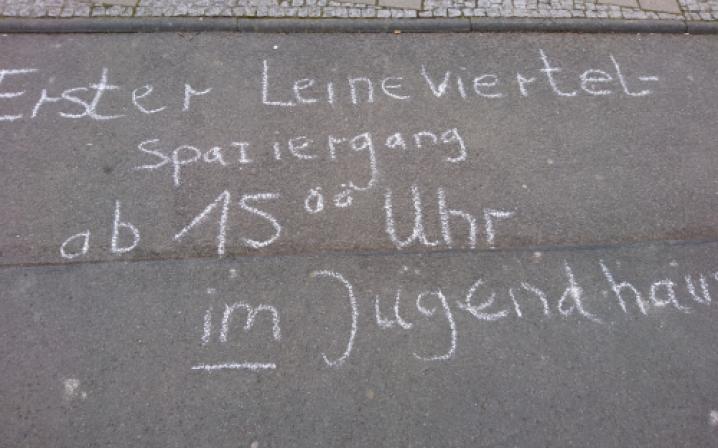 Erster Leineviertel-
Spaziergang
ab 15⁰⁰ Uhr
im Jugendhau